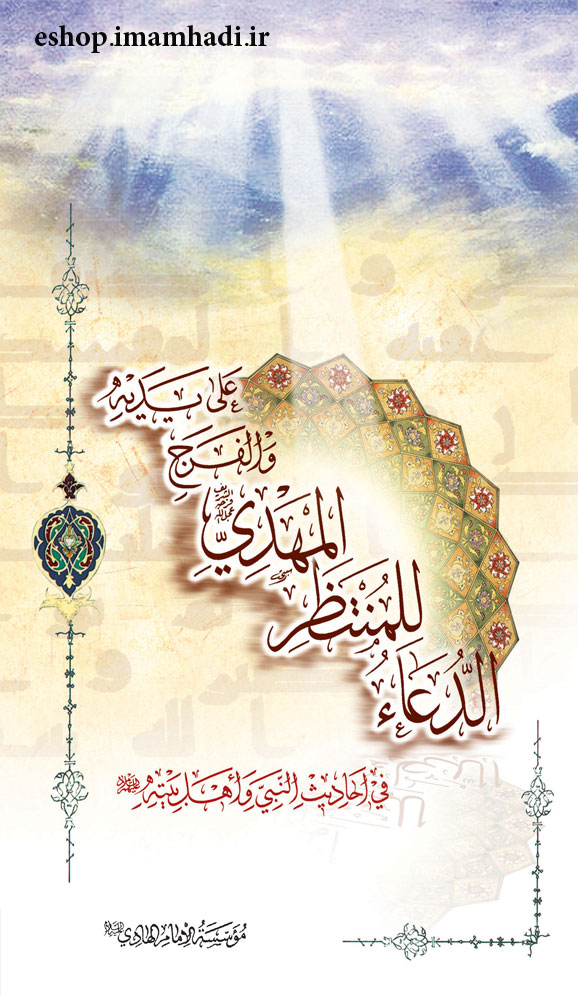 eshop.imamhadi.ir
الدُّعَاءُ
لِلمُنتَظَرِ
المَهْدِيِّ عجل الله فرجه الشريف
وَالفَرَجِ
عَلى يَدَيْهِ
في أحَادِيثِ النَّبِيّ وَأهْلِ بَيْتِهِ عليهم السلام
مُؤَسَّسَةُ الإمَام الهَادِي